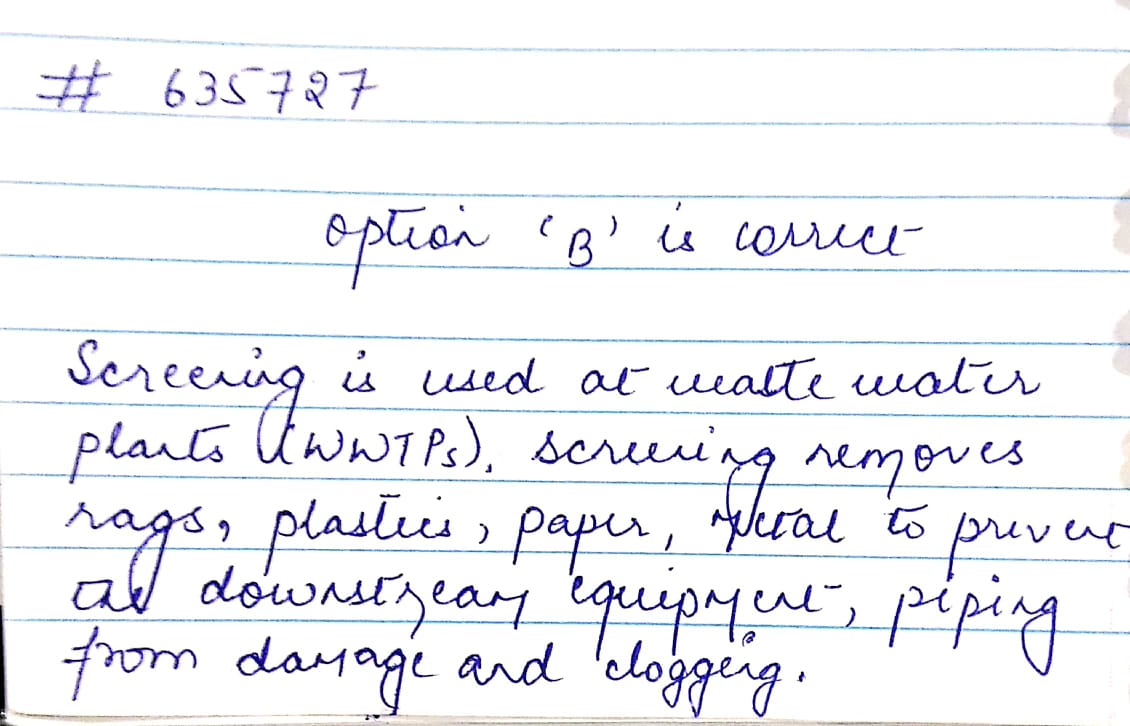 # 635727
option 'B' is correct
Screening is used at waste water
plants (WWTPs), screening removes
rags, plastics, paper, metal to prevent
the downstream equipment, piping
from damage and cloggeig.